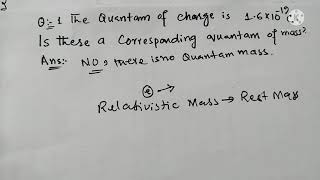 Q:- 1 The Quantam of charge is 1.6×10⁻¹⁹
Is these a Corresponding quantam of mass?
Ans:- NO, there is no Quantam mass.
Relativistic Mass → Rest Mass